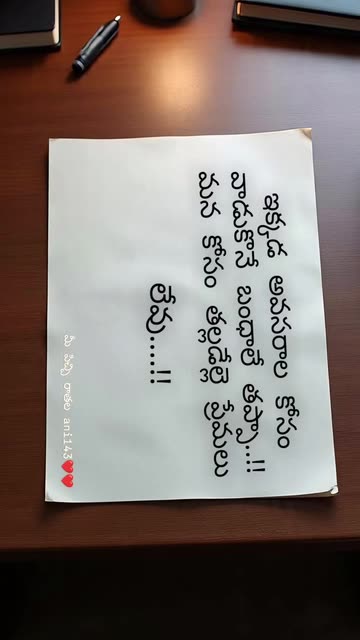 ఇక్కడ అవసరాల కోసం
వాడుకొనే బంధాలే తప్పా...!!
మన కోసం తల్లడిల్లే ప్రేమలు
లేవు....!!
మీ పిచ్చి రాతలు ani143❤️❤️